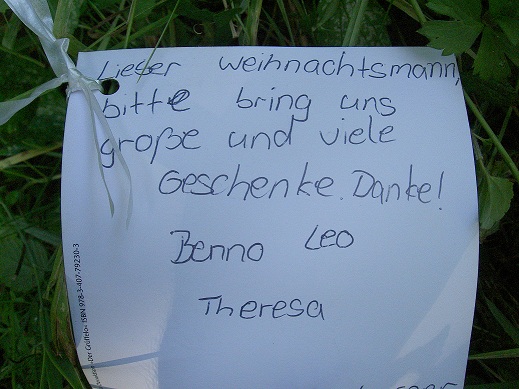 Lieber Weihnachtsmann,
bitte bring uns
große und viele
Geschenke. Danke!
Benno Leo
Theresa
»Der Grüffelo« ISBN 978-3-407-79230-3